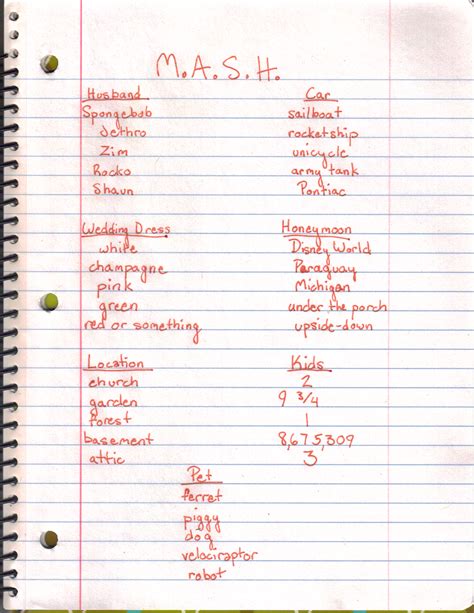 M.A.S.H.
Husband
Spongebob
Jethro
Zim
Rocko
Shaun
Car
sailboat
rocketship
unicycle
army tank
Pontiac
Wedding Dress
white
champagne
pink
green
red or something
Honeymoon
Disney World
Paraguay
Michigan
under the porch
upside-down
Location
church
garden
forest
basement
attic
Kids
2
9 3/4
1
8,675,309
3
Pet
ferret
piggy
dog
velociraptor
robot